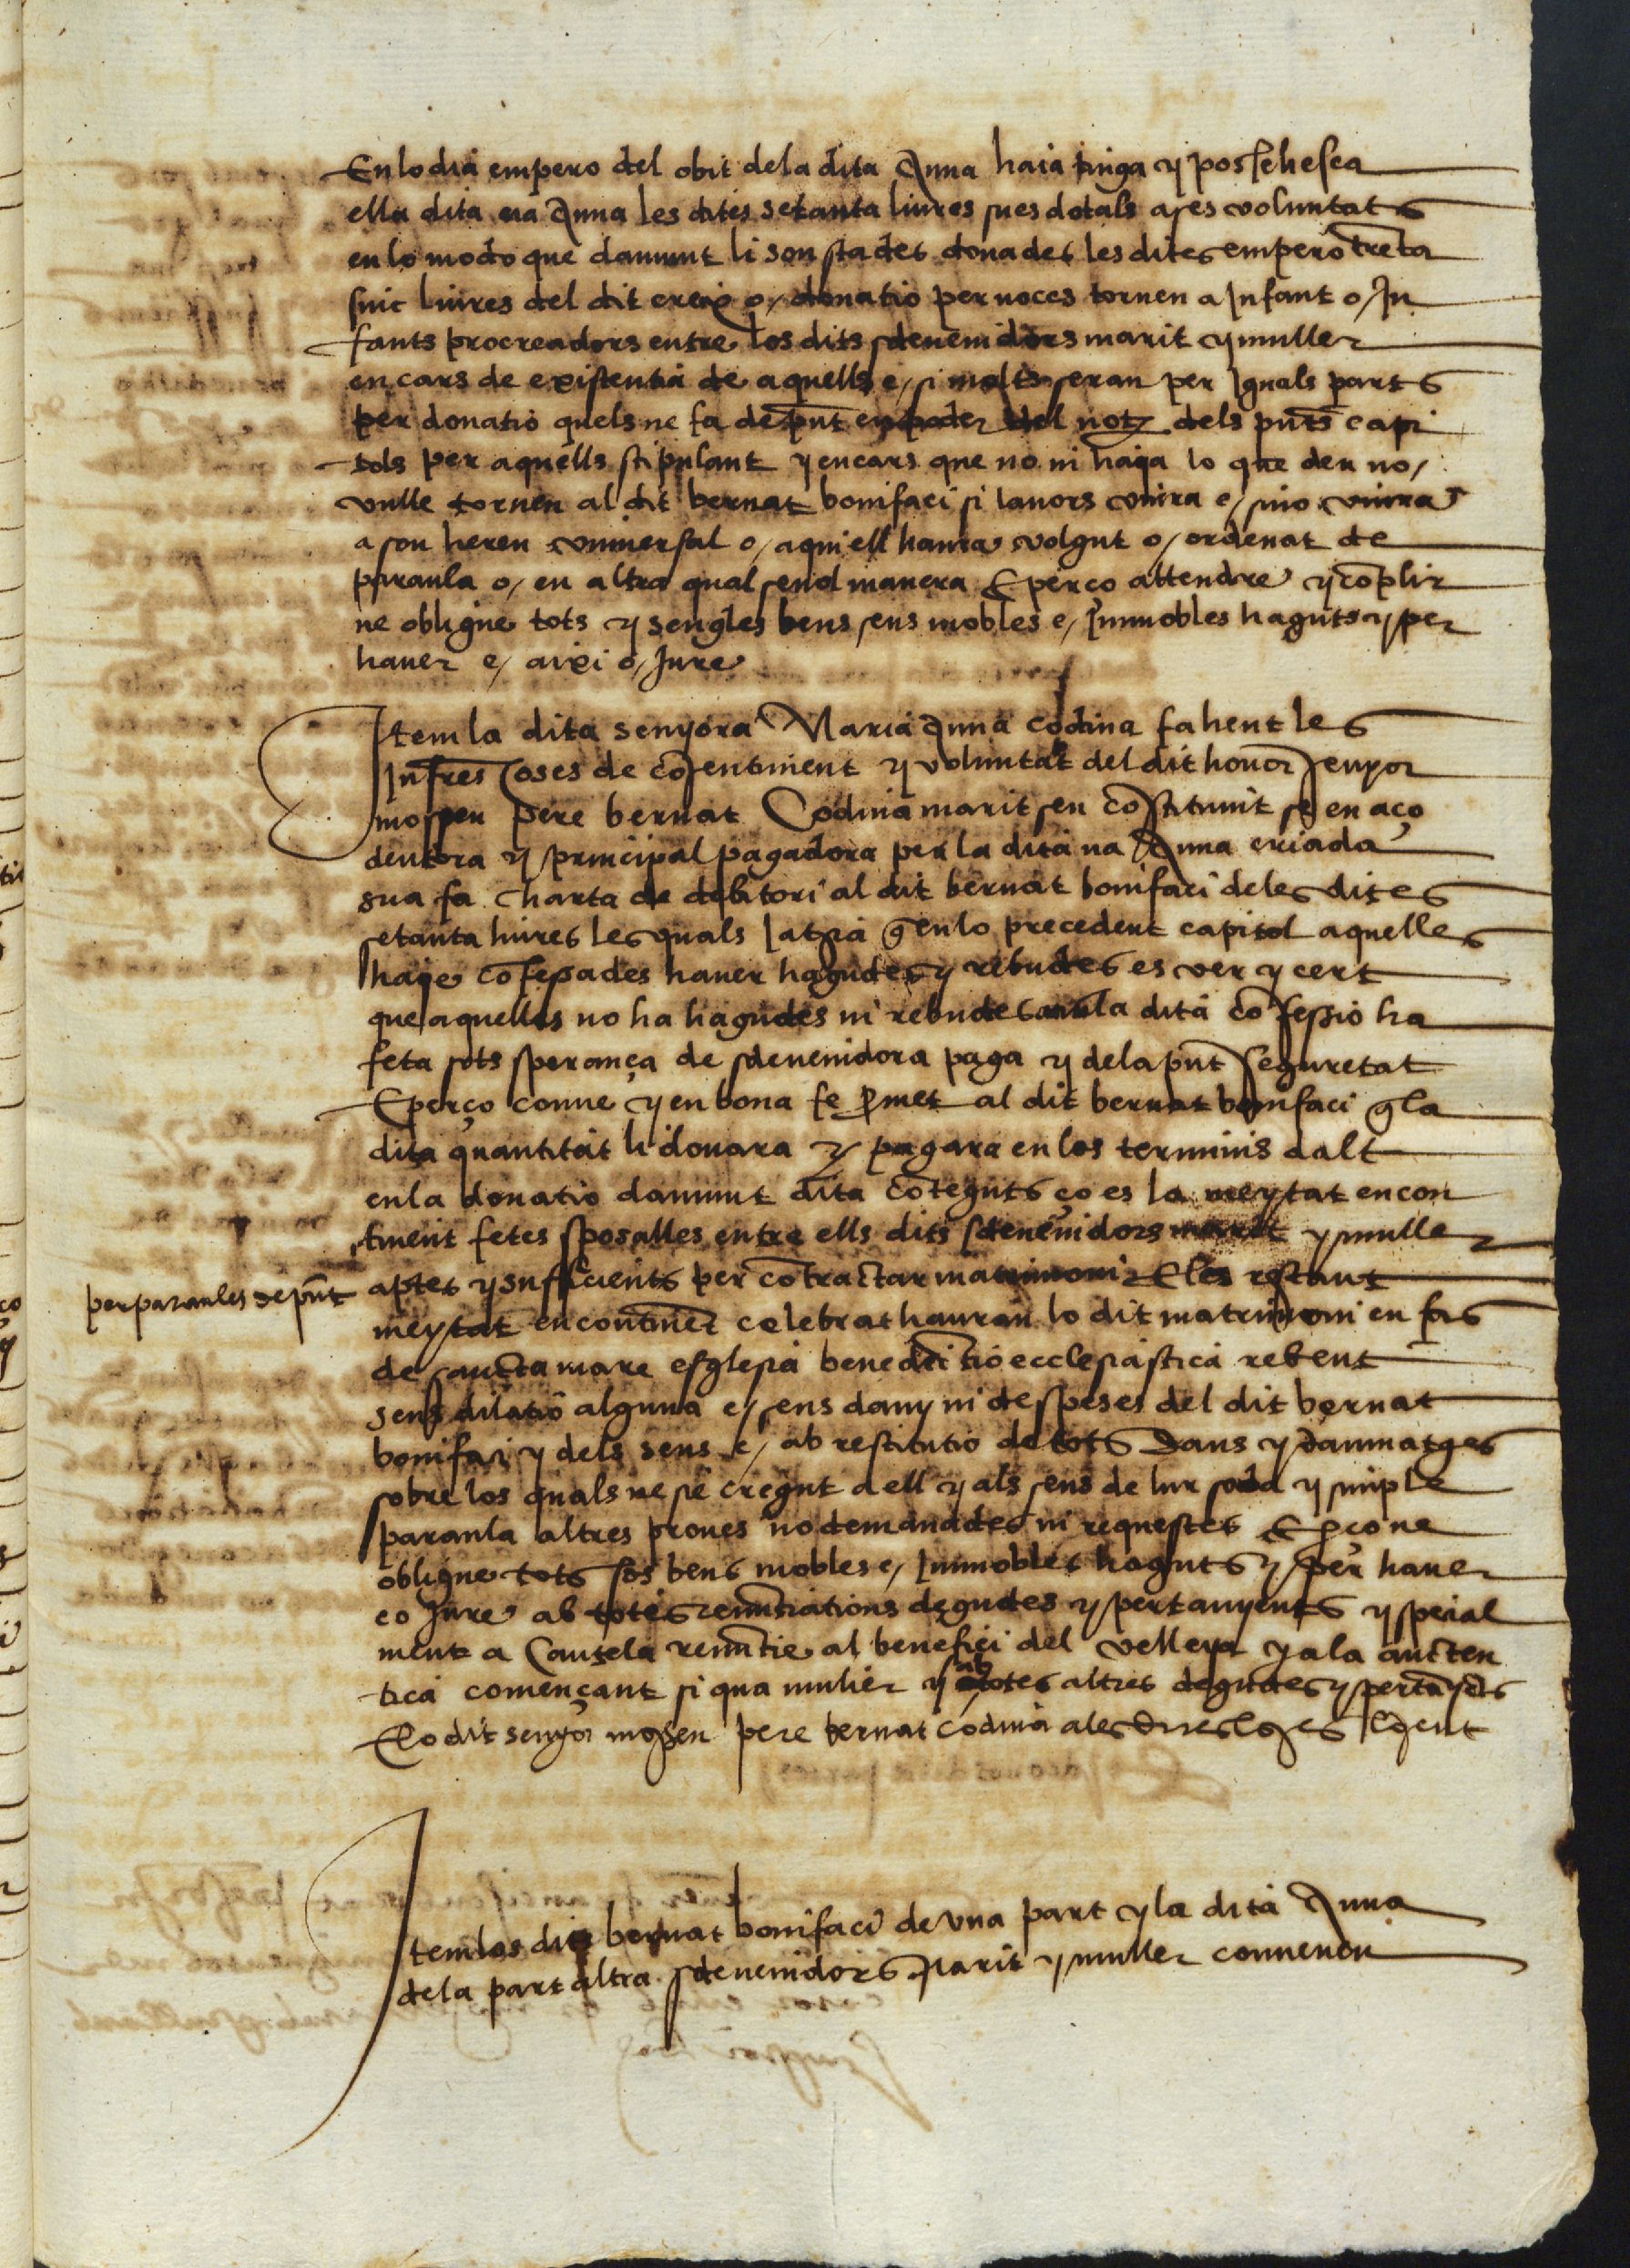 En lo dia empero del obit dela dita Anna haia tinga y possehesca
ella dita na Anna les dites setanta liures sues dotals a ses voluntats
en lo modo que damunt li son stades donades les dites empero trēta
sinc liures del dit creix o/ donatio per noces tornen a Infant o/ In
fants procreadors entre los dits sdeuenidors marit y muller
en cars de existentia de aquells e/ si molts seran per Iguals parts
per donatio quels ne fa de pn̄t en poder del not͂ dels pn̄ts capi
tols per aquells stipulant y en cars que no ni haja lo que deu no/
vulle tornen al dit bernat bonifaci si lauors viura e/ sino viura
a son hereu vniuersal o/ a qui ell haura volgut o/ ordenat de
paraula o/ en altra qual seuol manera E perço attendre y cōplir
ne obligue tots y sengles bens seus mobles e/ Immobles haguts y per
hauer e/ aixi o/ Jure
Item la dita senyora Maria Anna codina fahent les
Infrēs coses de cōsentiment y voluntat del dit honor senyor
mossen pere bernat Codina marit seu cōstituint se en aço
deutora y principal pagadora per la dita na Anna criada
sua fa charta de debitori al dit bernat bonifaci deles dites
setanta liures les quals Iatsia q̄ en lo precedent capitol aquelles
haje cōfessades hauer hagudes y rebudes es ver y cert
que aquelles no ha hagudes ni rebudes ans la dita cōfessio ha
feta sots sperança de sdeuenidora paga y dela pn̄t seguretat
E perço conue y en bona fe p̄met al dit bernat bonifaci q̄ la
dita quantitat li donara y pagara en los terminis dalt
en la donatio damunt dita cōteguts ço es la meytat encon
tinent fetes sposalles entre ells dits sdeuenidors marit y muller
per paraules de pn̄t
aptes y sufficients per cōtractar matrimoni E les restant
meytat encontinēt celebrat hauran lo dit matrimoni en fas
de sancta mare esglesia benedictio ecclesiastica rebent
sens dilatio alguna e/ sens dany ni despeses del dit bernat
bonifaci y dels seus e/ ab restitutio de tots dans y dammatges
sobre los quals ne sie cregut a ell y als seus de lur sola y simple
paraula altres proues no demanades ni requestes E p̄ço ne
obligue tots sos bens mobles e/ Immobles haguts y per hauer
eo Jure ab totes renūtiations degudes y pertanyents y special
ment a Cautela renūtie al benefici del velleya y a la aucten
tica començant si qua mulier y ab totes altres degudes y pertāyēts
E lo dit senyor mossen pere bernat codina a les dites coses
Item los dits bernat bonifaci de vna part y la dita Anna
dela part altra sdeuenidors Marit y muller conuenen